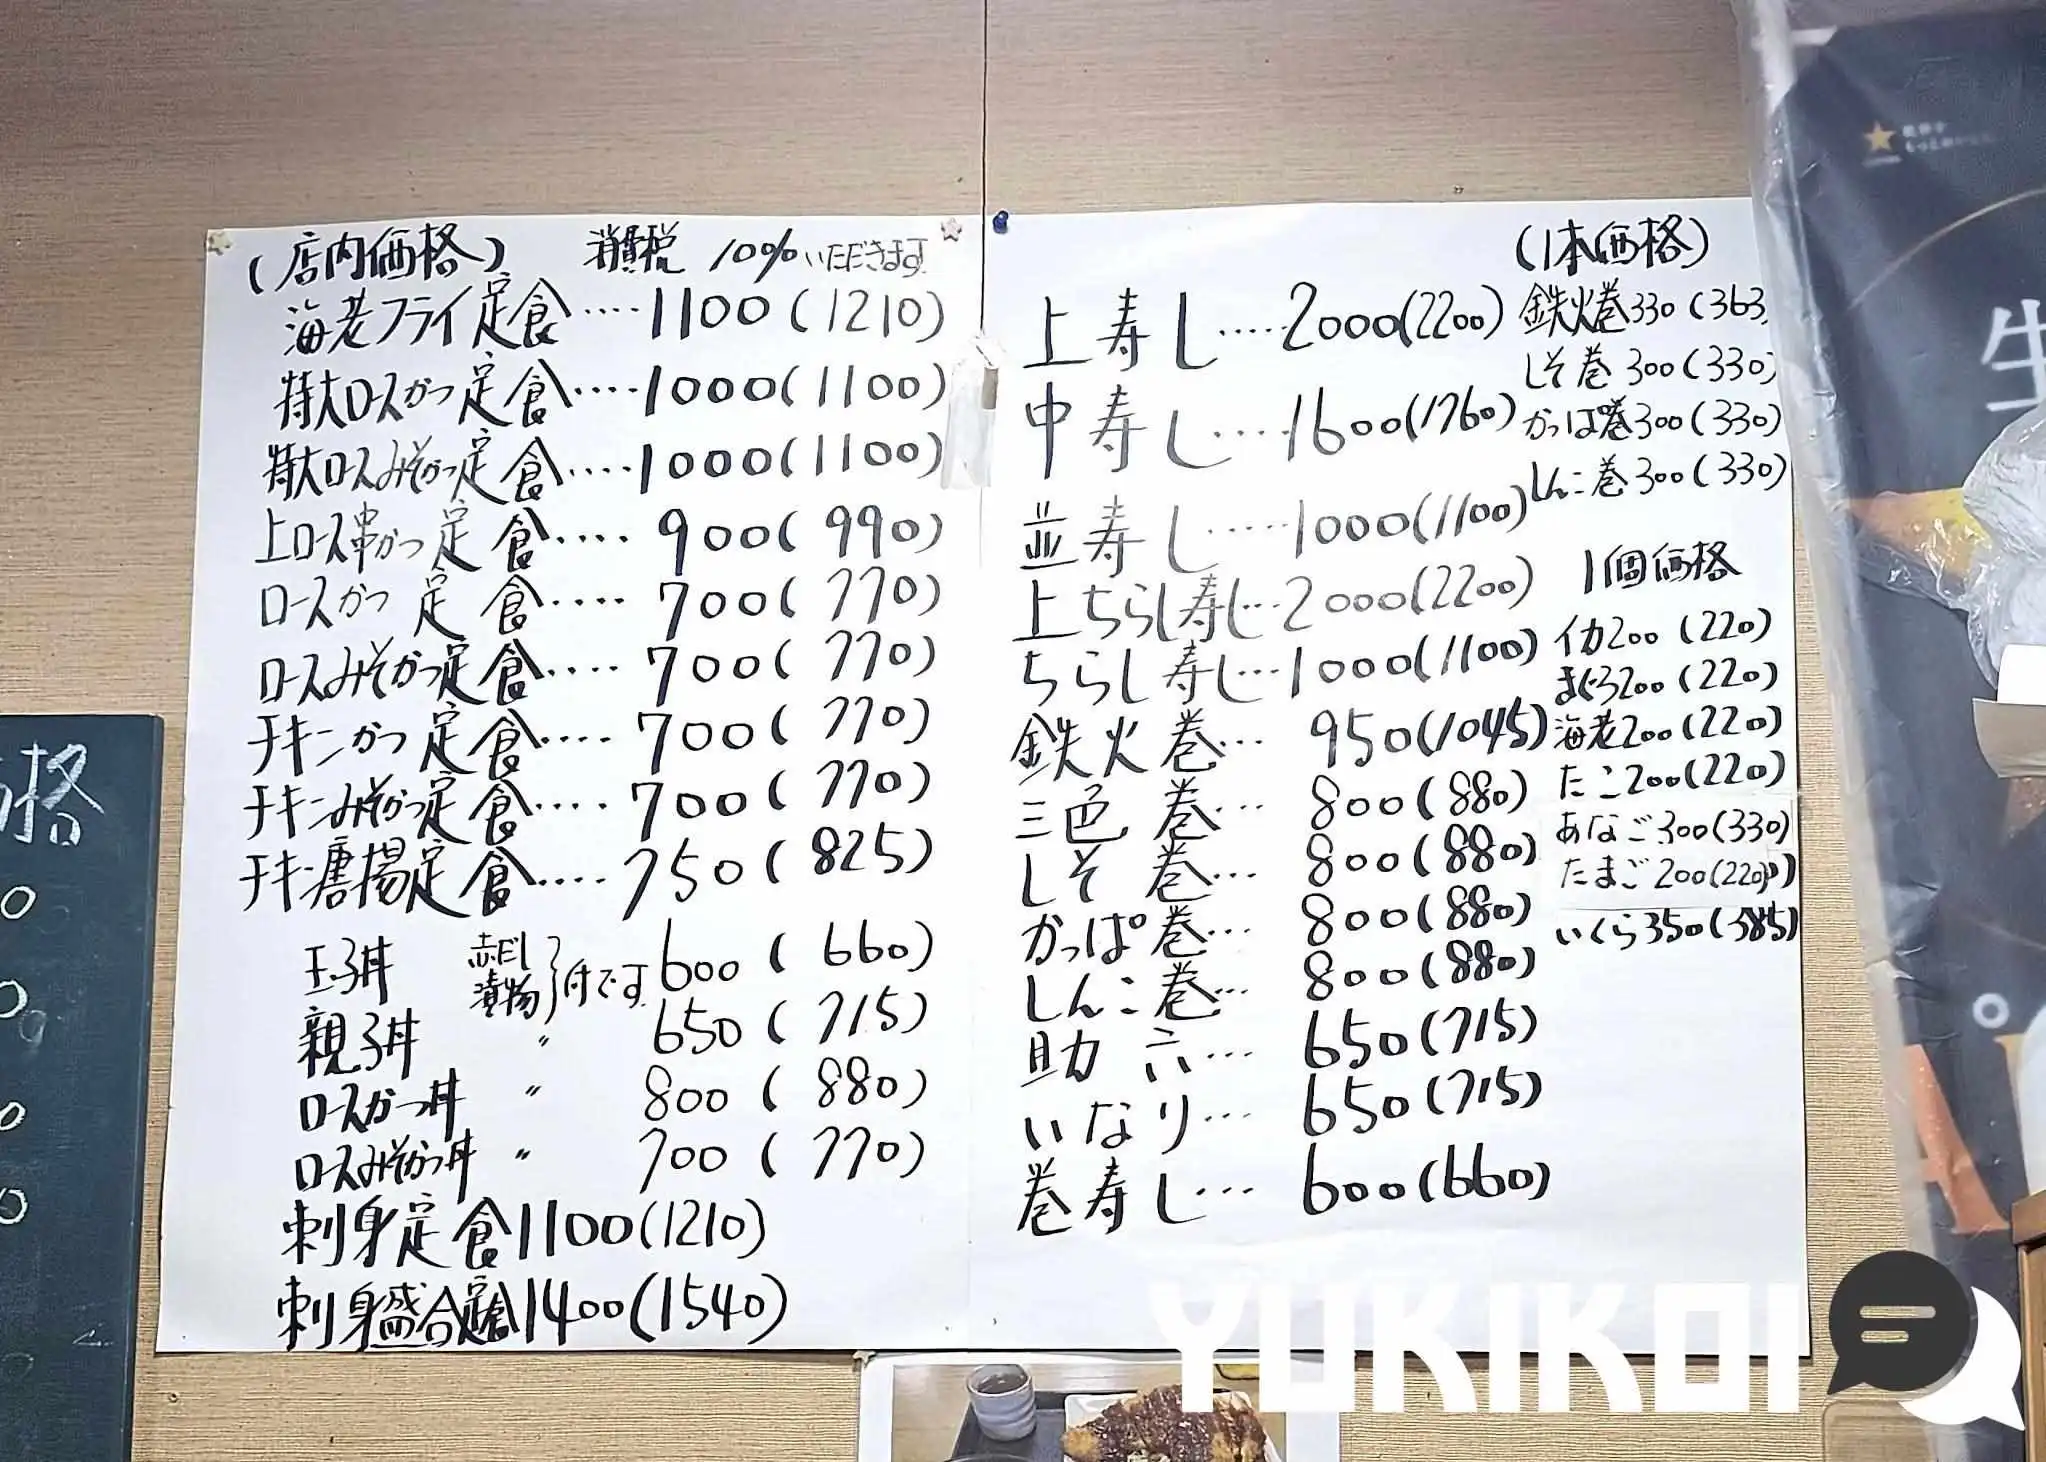 (店内価格) 消費税 10%いただきます
海老フライ定食‥‥1100(1210)
特大ロースかつ定食‥‥1000(1100)
特大ロースみそかつ定食‥‥1000(1100)
上ロース串かつ定食‥‥900(990)
ロースかつ定食‥‥700(770)
ロースみそかつ定食‥‥700(770)
チキンかつ定食‥‥700(770)
チキンみそかつ定食‥‥700(770)
チキン唐揚定食‥‥750(825)
玉子丼 赤だし 漬物 付です 600(660)
親子丼 〃 650(715)
ロースかつ丼 〃 800(880)
ロースみそかつ丼 〃 700(770)
刺身定食1100(1210)
刺身盛合定食1400(1540)
上寿し‥‥2000(2200)
中寿し‥‥1600(1760)
並寿し‥‥1000(1100)
上ちらし寿し‥2000(2200)
ちらし寿し‥1000(1100)
鉄火巻‥950(1045)
三色巻‥800(880)
しそ巻‥800(880)
かっぱ巻‥800(880)
しんこ巻‥800(880)
助六‥650(715)
いなり‥650(715)
巻寿し‥600(660)
(1本価格)
鉄火巻330(363)
しそ巻300(330)
かっぱ巻300(330)
しんこ巻300(330)
1個価格
イカ200(220)
まぐろ200(220)
海老200(220)
たこ200(220)
あなご300(330)
たまご200(220)
いくら350(385)
格
生
YUKIKOI